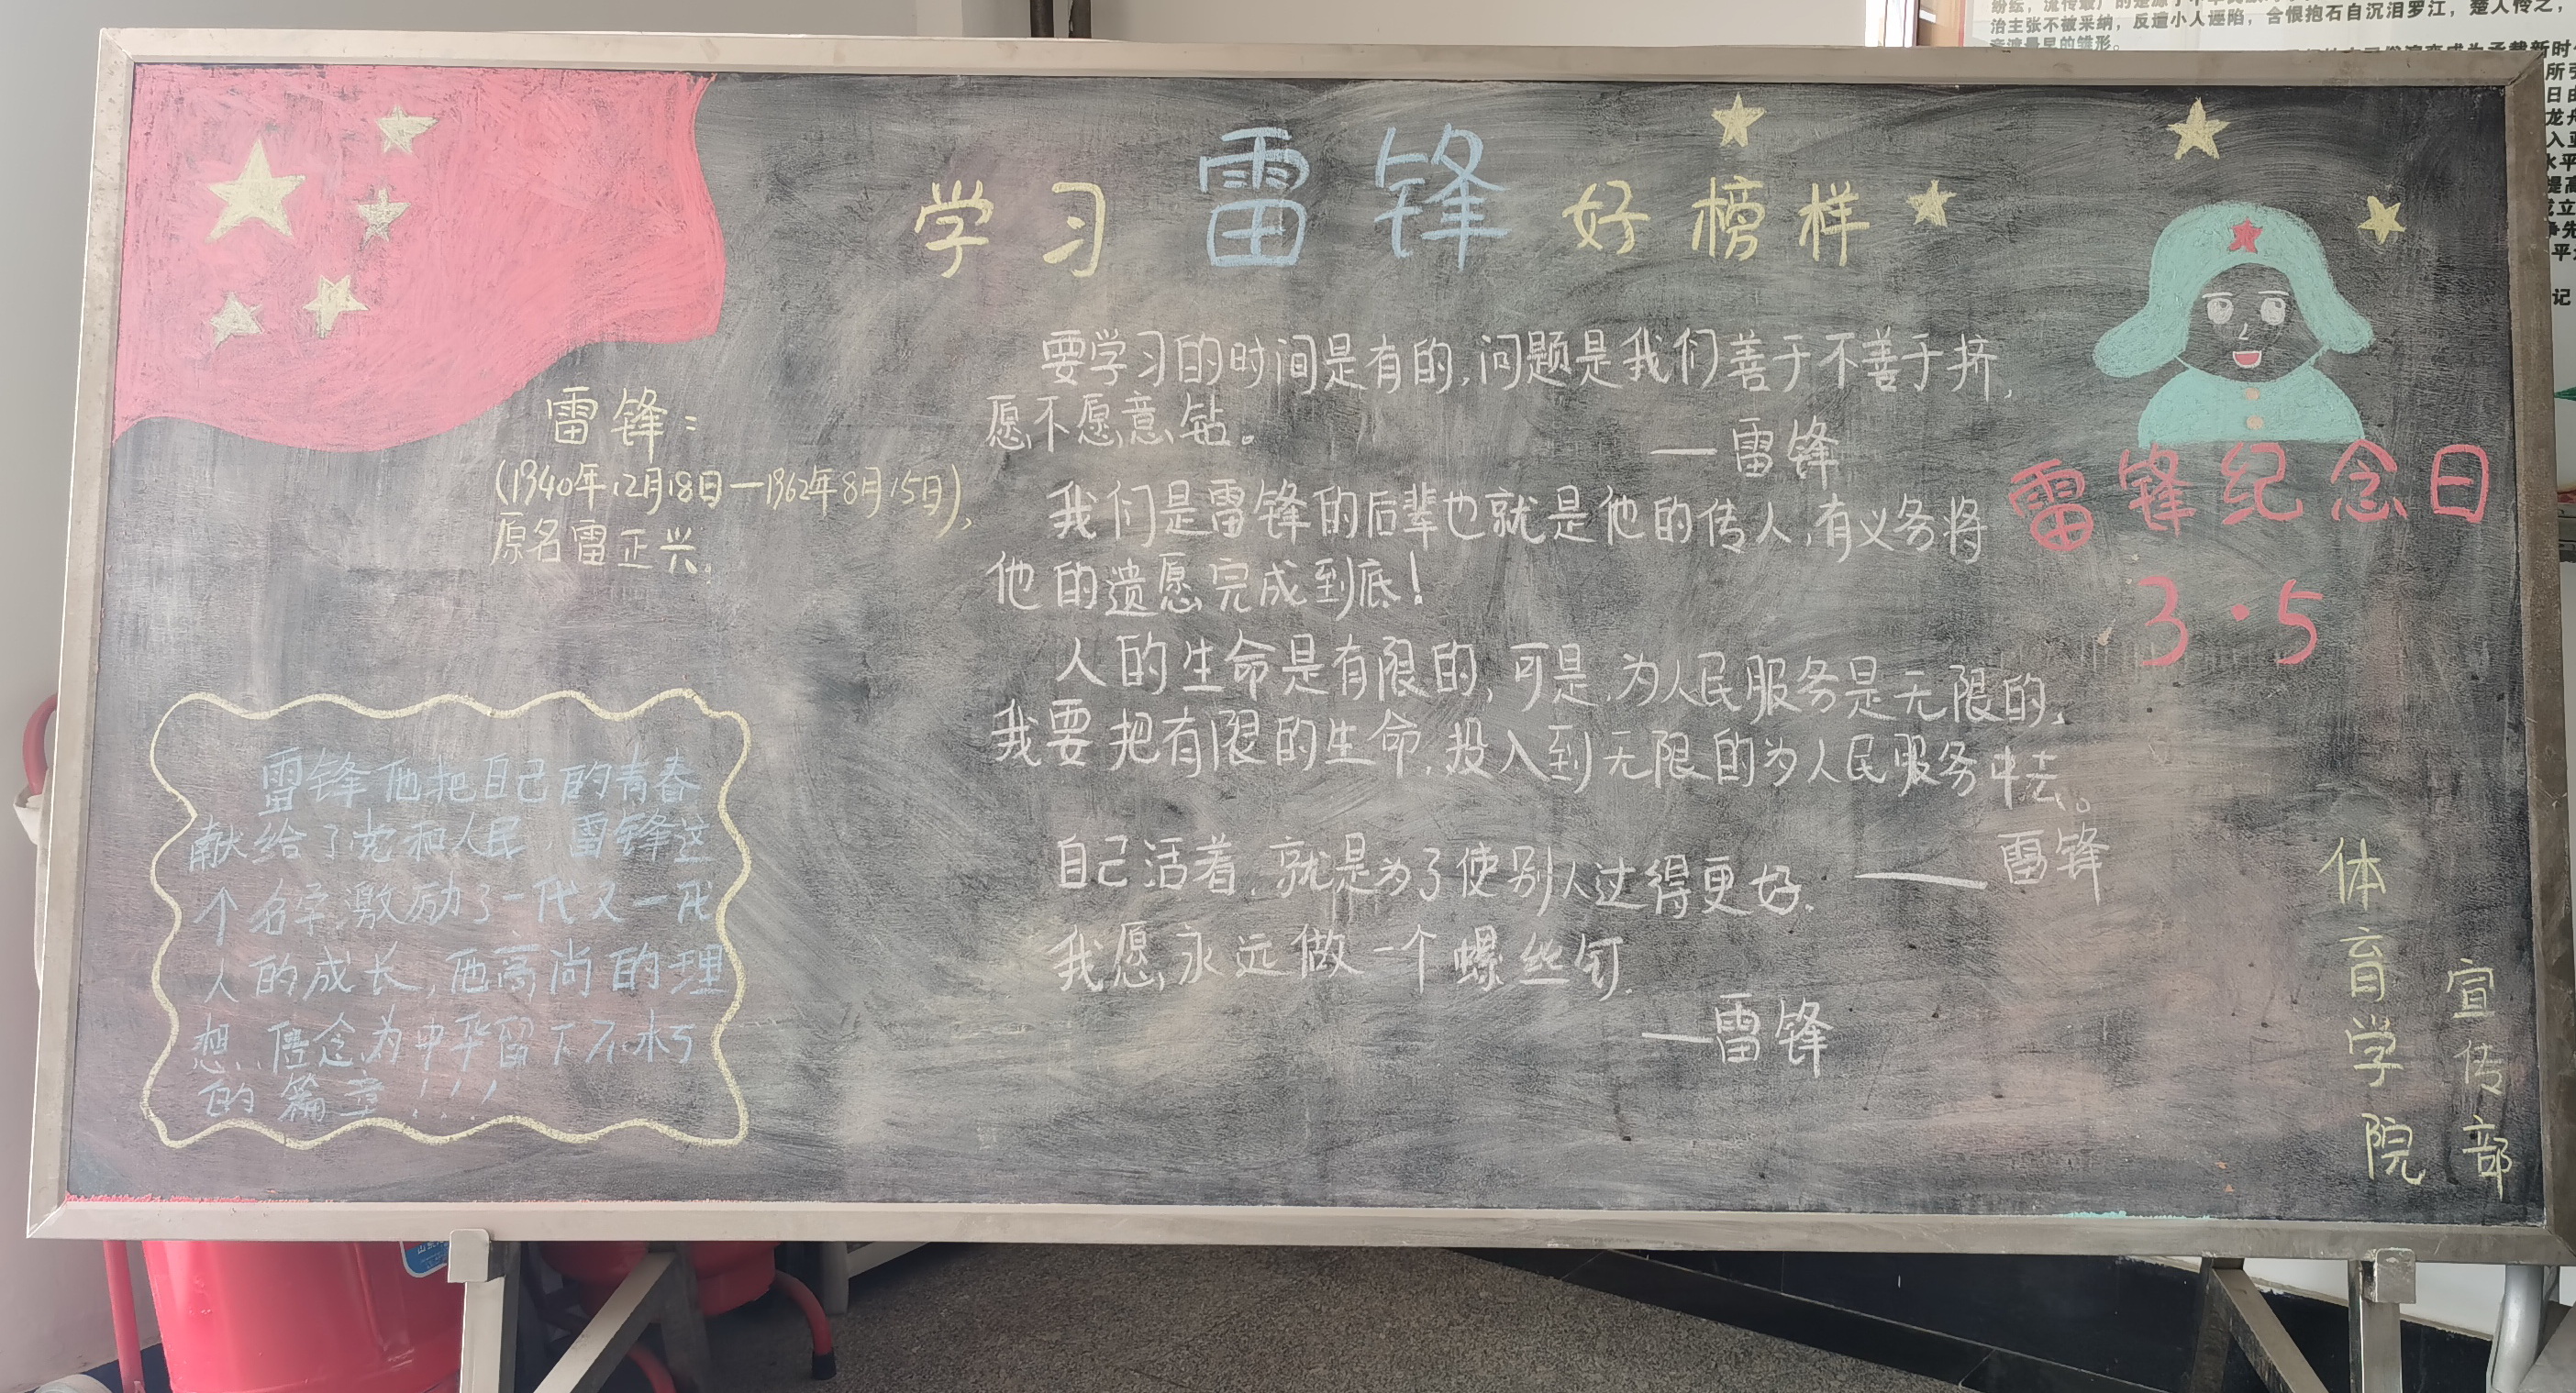 学习雷锋好榜样
雷锋:
(1940年12月18日—1962年8月15日),
原名雷正兴.
雷锋他把自己的青春
献给了党和人民,雷锋这
个名字激励了一代又一代
人的成长,而高尚的理
想、信念为中华留下不朽
的篇章!!!
要学习的时间是有的,问题是我们善于不善于挤,
愿不愿意钻。
—雷锋
我们是雷锋的后辈也就是他的传人,有义务将
他的遗愿完成到底!
人的生命是有限的,可是,为人民服务是无限的,
我要把有限的生命,投入到无限的为人民服务中去。
——雷锋
自己活着,就是为了使别人过得更好.
我愿永远做一个螺丝钉.
—雷锋
雷锋纪念日
3·5
体育学院
宣传部
治主张不被采纳，反遭小人诬陷，含恨抱石自沉汨罗江，楚人怜之，